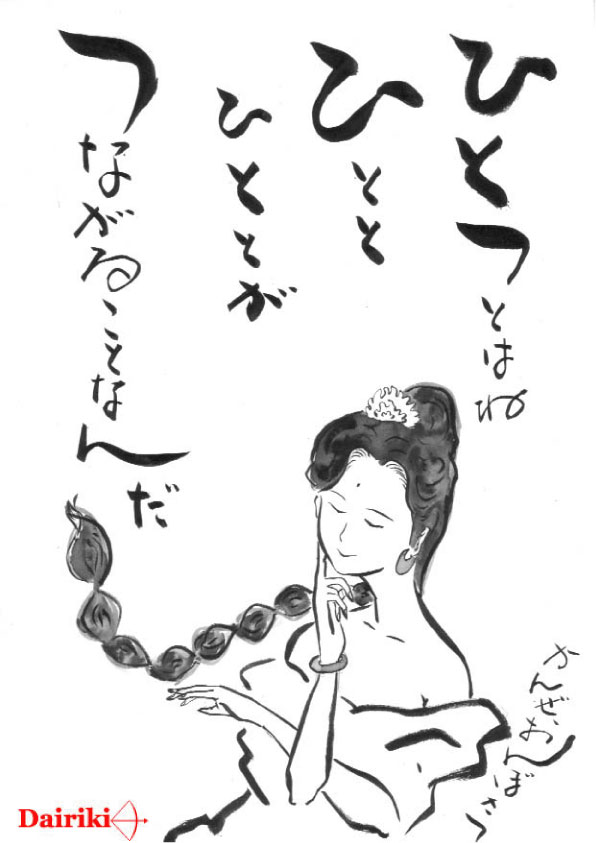 ひとつとはね
ひとと
ひととが
つながることなんだ
かんぜおんぼさつ
Dairiki